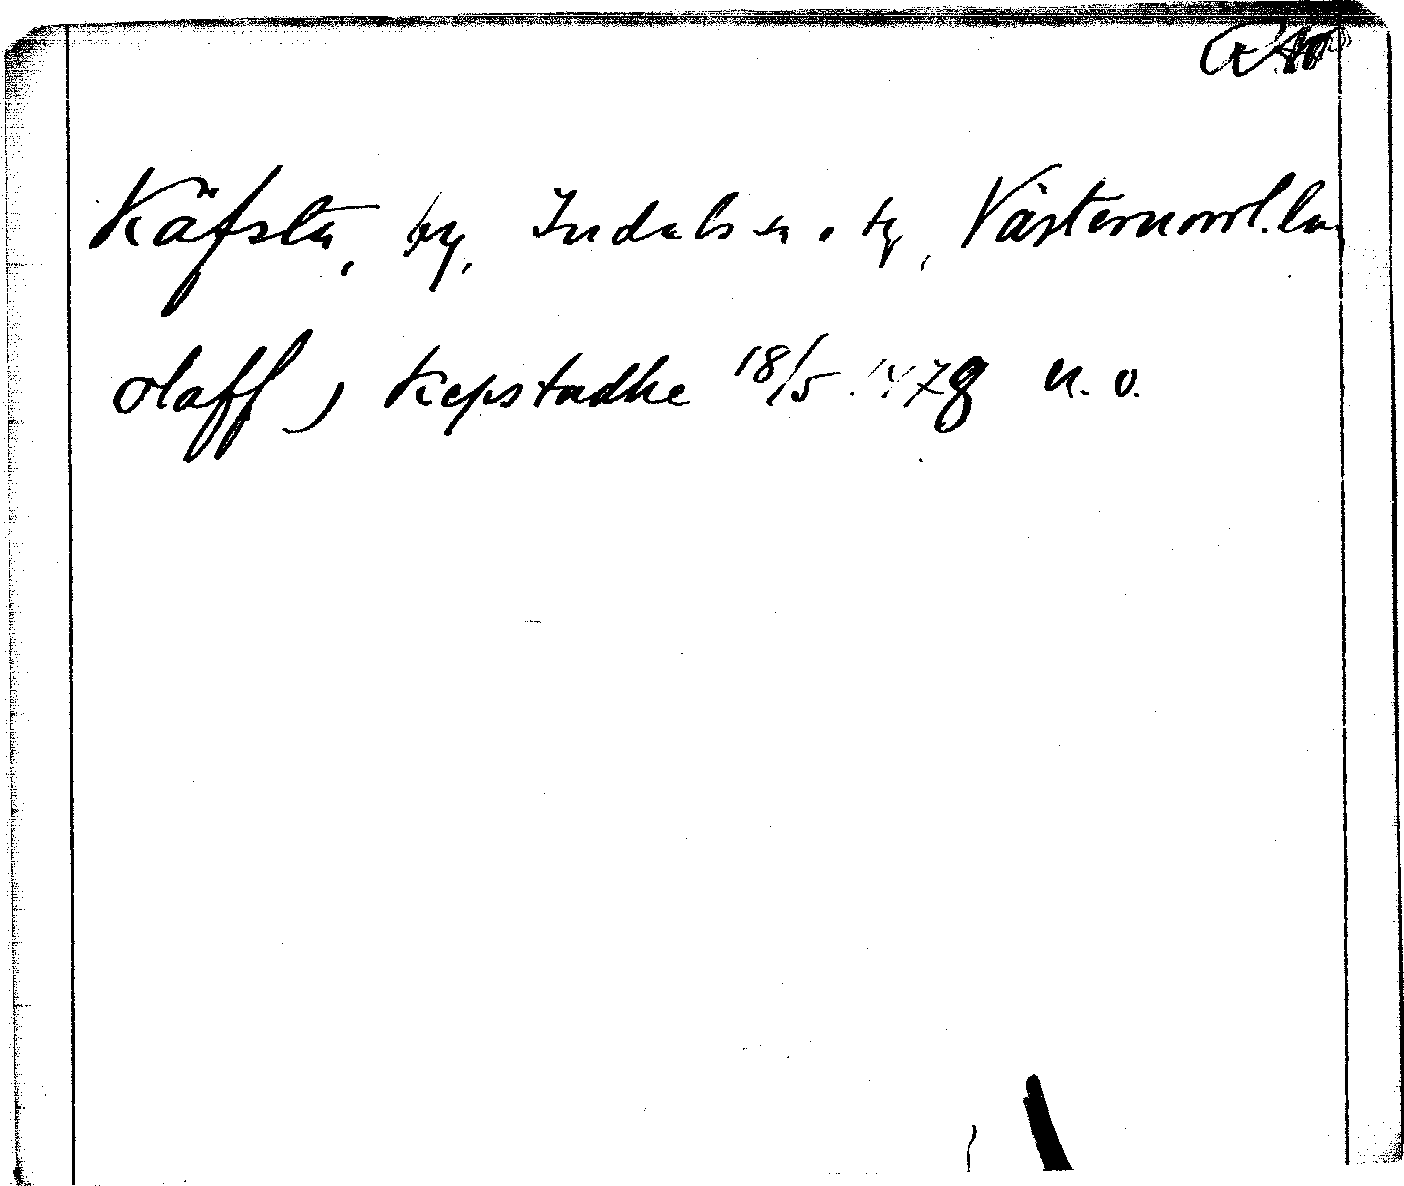 Käfsta, by, Indals sn o. tg, Västernorrl. län
olaff j kepstadhe 18/5 1478 n. o.